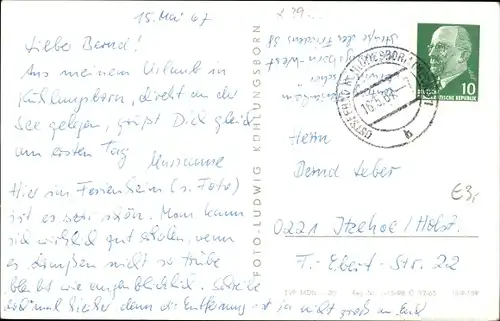 15. Mai 67
Lieber Bernd!
Aus meinem Urlaub in
Kühlungsborn, direkt an der
See gelegen, grüßt Dich gleich
am ersten Tag
Marianne
Hier im Ferienheim (s. Foto)
ist es sehr schön. Man kann
sich wirklich gut erholen, wenn
es draußen nicht so trübe
bleibt wie augenblicklich. Schreibe
mal
denn die Entfernung ist ja nicht groß
FOTO-LUDWIG KÜHLUNGSBORN
Straße des Friedens
Kühlungsborn-West
10
DEUTSCHE DEMOKRATISCHE REPUBLIK
OSTSEEBAD KÜHLUNGSBORN
16.5.67
b
Herrn
Bernd Leber
€3,-
0221 Itzehoe/Holst.
F.-Ebert-Str. 22